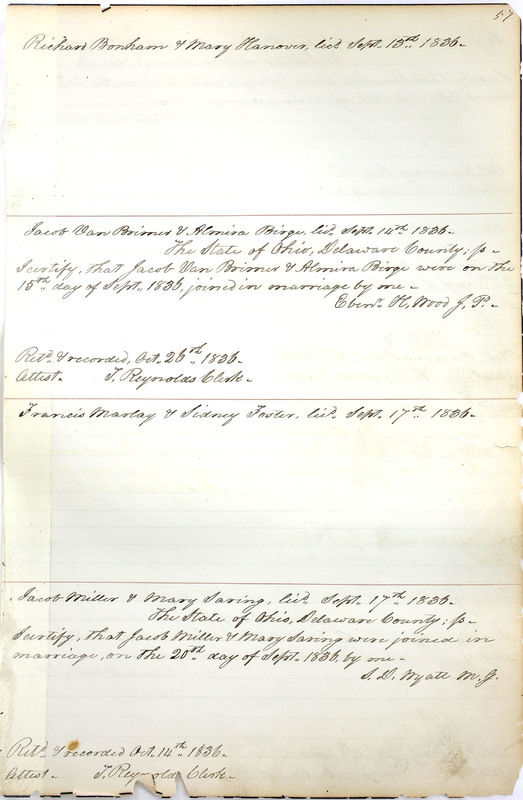 57
Richard Bonham & Mary Hanover, licd. Sept. 13th. 1836.
Jacob Van Brimer & Almira Birge, licd. Sept. 14th. 1836.
The State of Ohio, Delaware County; ss.
I certify, that Jacob Van Brimer & Almira Birge were on the
15th. day of Sept. 1836, joined in marriage by me.
Ebenr. H. Wood J. P.
Retd. & recorded, Oct. 26th. 1836.
Attest. T. Reynolds Clerk.
Francis Marlay & Sidney Foster, licd. Sept. 17th. 1836.
Jacob Miller & Mary Saring, licd. Sept. 17th. 1836.
The State of Ohio, Delaware County; ss.
I certify, that Jacob Miller & Mary Saring were joined in
marriage, on the 20th. day of Sept. 1836, by me.
S. D. Wyatt M. G.
Retd. & recorded Oct. 14th. 1836.
Attest. T. Reynolds Clerk.